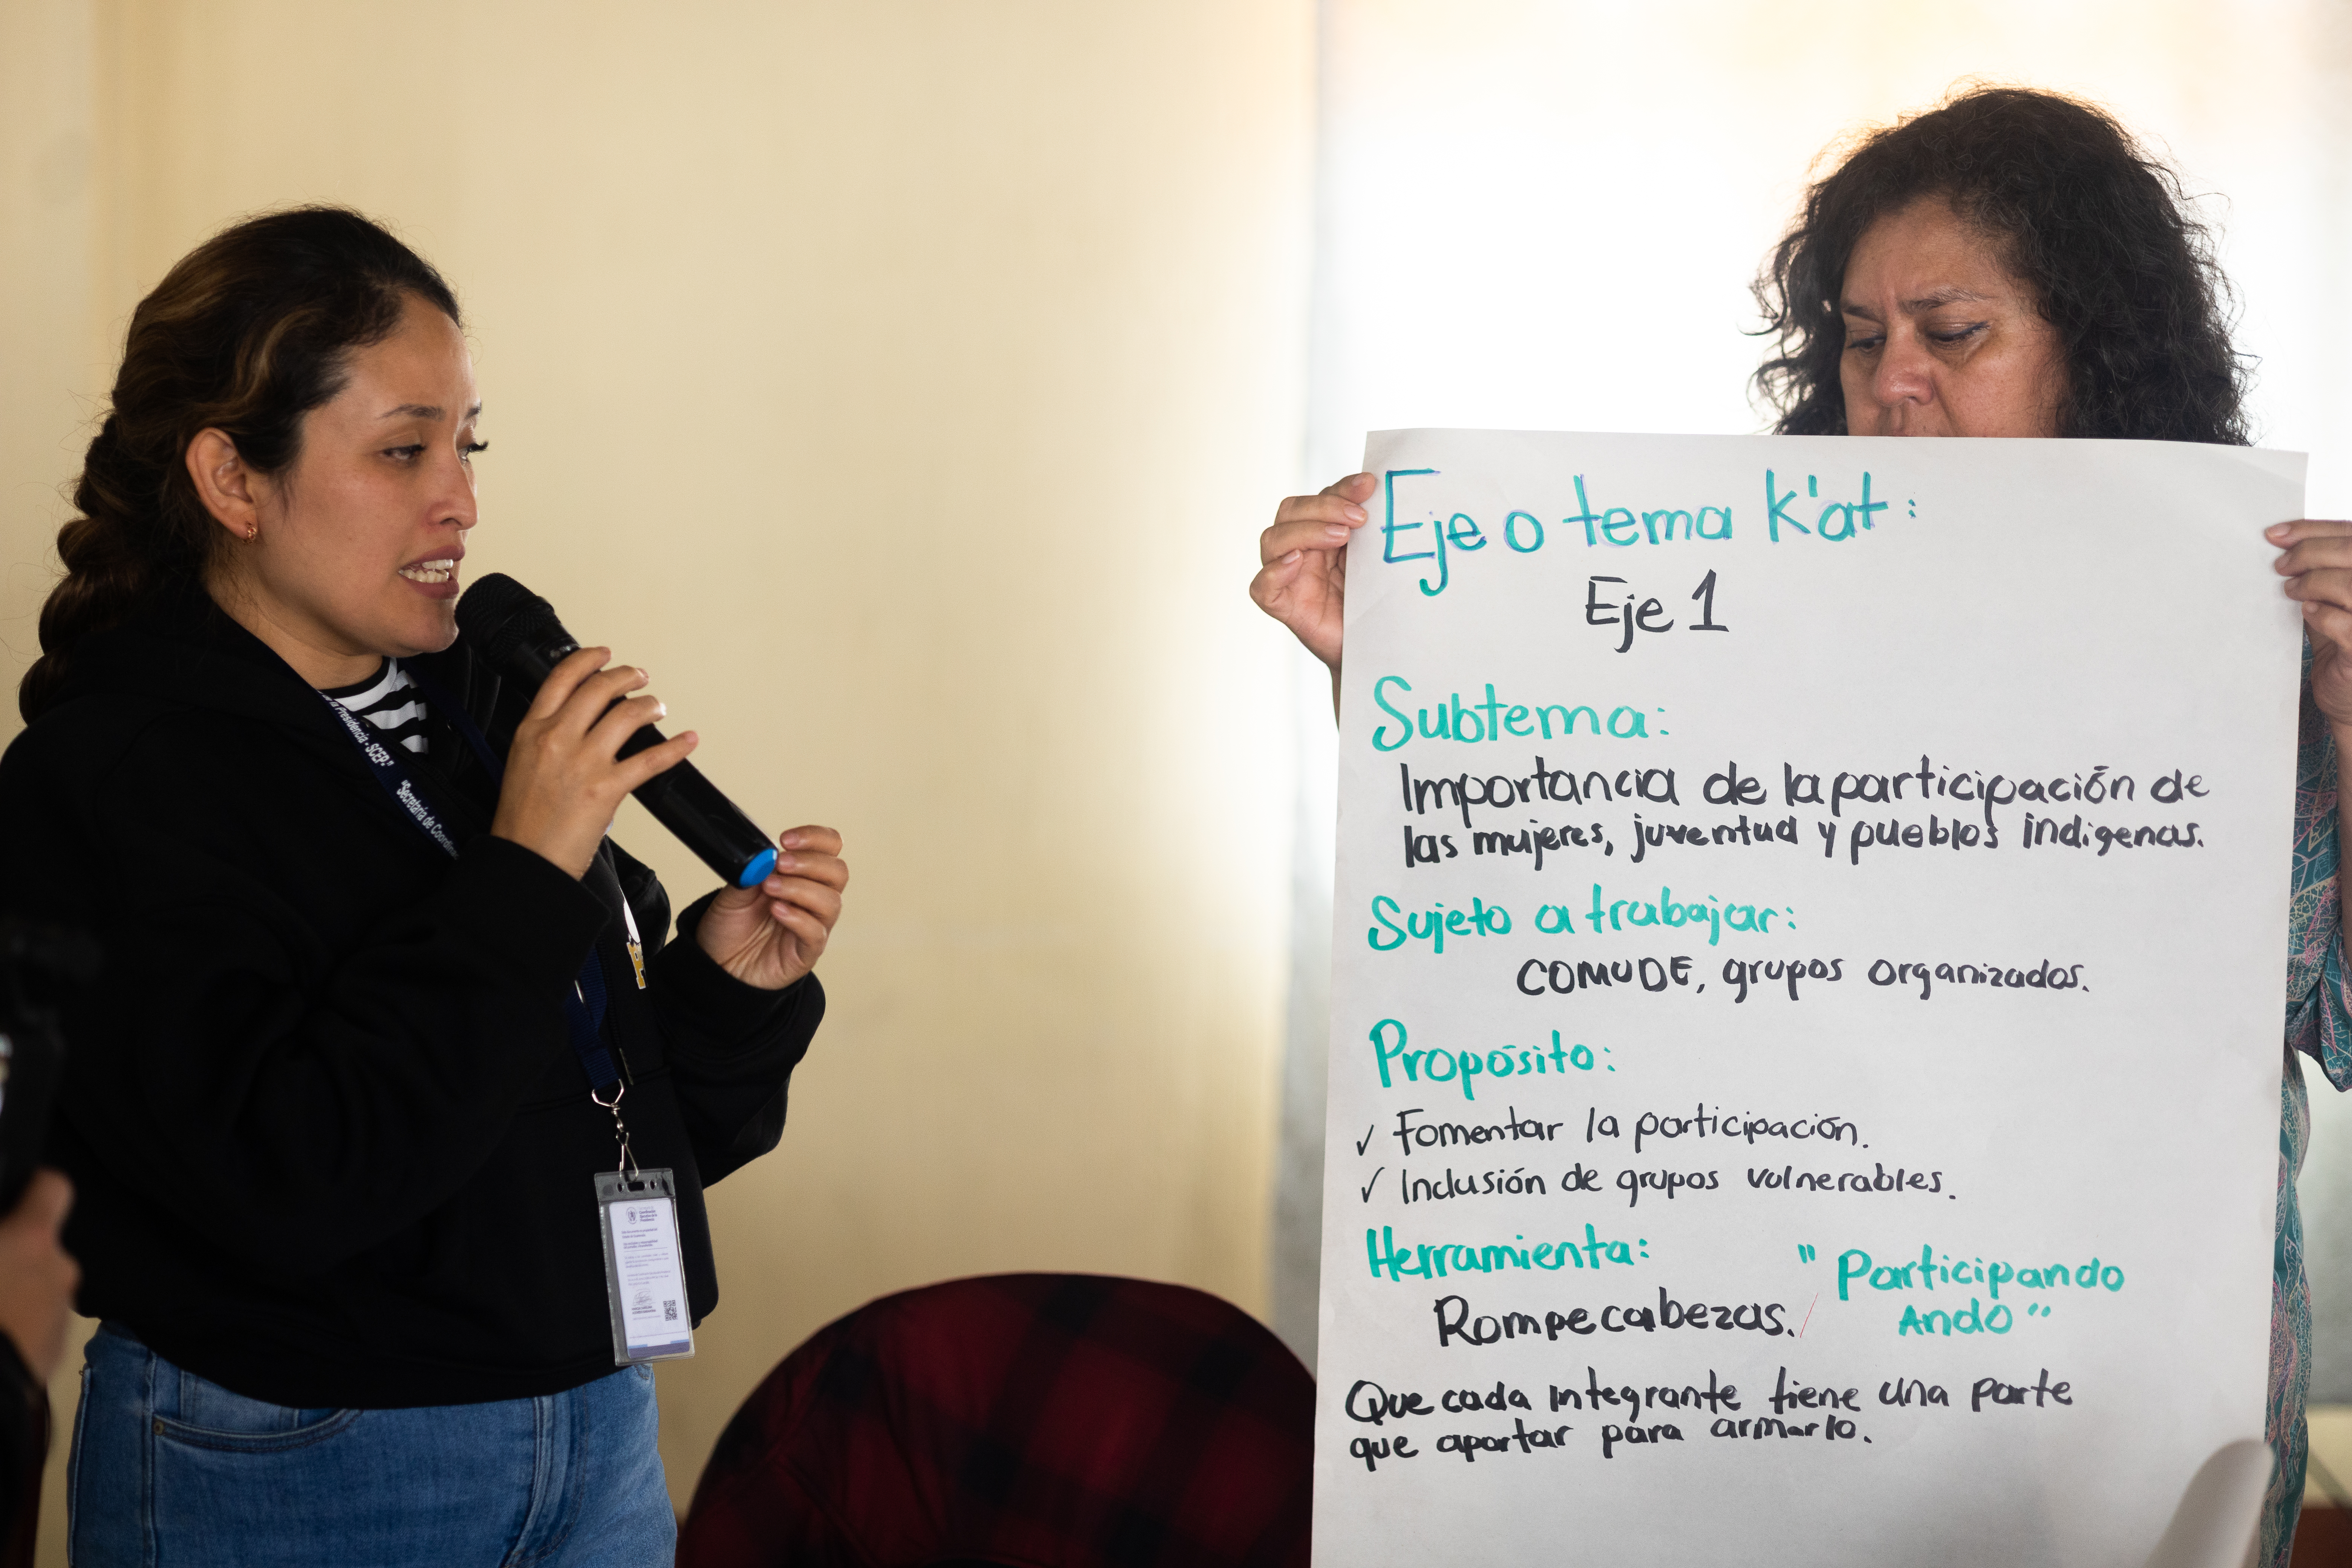 Eje o tema k'at:
Eje 1
Subtema:
Importancia de la participación de
las mujeres, juventud y pueblos indigenas.
Sujeto a trabajar:
COMUDE, grupos organizados.
Propósito:
✓ Fomentar la participación.
✓ Inclusión de grupos vulnerables.
Herramienta:
Rompecabezas. / "Participando
Ando"
Que cada integrante tiene una parte
que aportar para armarlo.
a Presidencia -SCEP-"
"Secretaría de Coordina